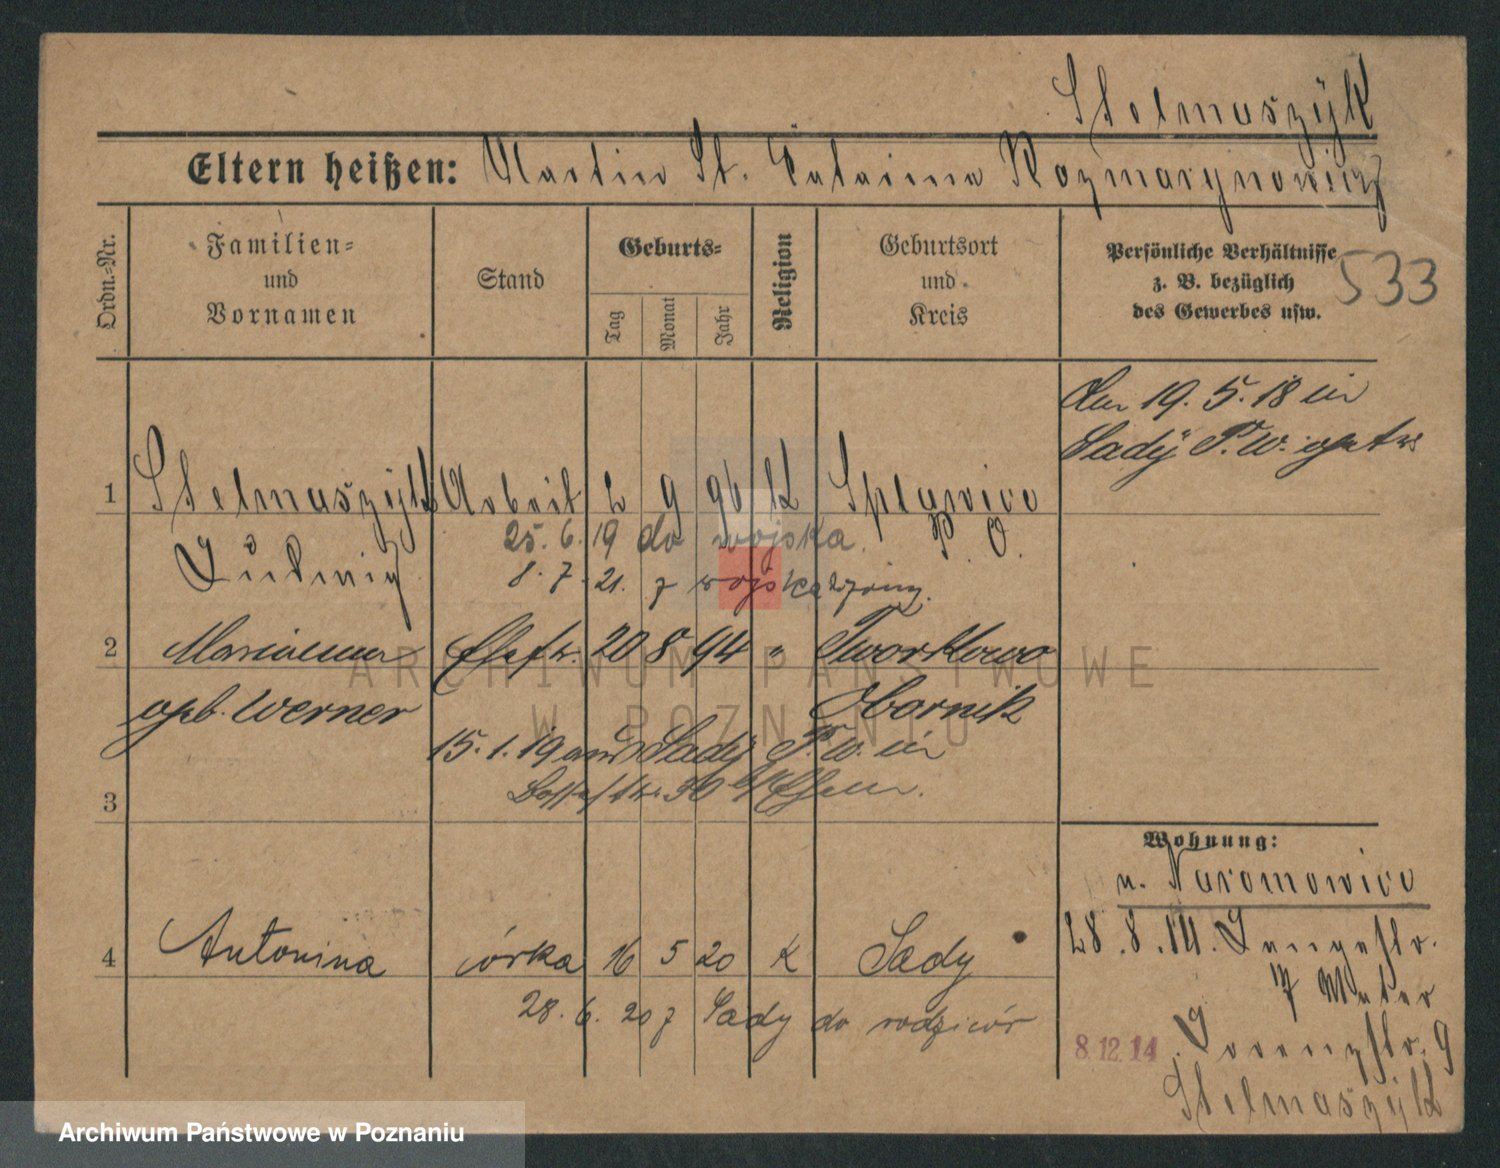 Stelmaszÿk
Eltern heißen: Martin St. Catarina Rozmarynowicz
Ordn.-Nr.
Familien- und Vornamen
Stand
Geburts-
Tag
Monat
Jahr
Religion
Geburtsort und Kreis
Persönliche Verhältnisse z. B. bezüglich des Gewerbes usw.
533
19. 5. 18 in
Sady P. W.
1 Stelmaszÿk Arbeit 2 9 96 K Splawie
25. 6. 19 do wojska. P. O.
Ludwig
8. 7. 21. z wojska
2 Marianna Ehefr. 20 8 94 " Tworkowo
geb. Werner Obornik
15. 1. 19 aus Sady P. W. in
3
36
Wohnung:
n. Naramowice
4 Antonina córka 16 5 20 K Sady
28. 8. 14. Langestr.
7 Mutter
28. 6. 20 z Sady do rodziców
8.12.14
Lorenzstr. 9
Stelmaszÿk
ARCHIWUM PAŃSTWOWE
W POZNANIU
Archiwum Państwowe w Poznaniu